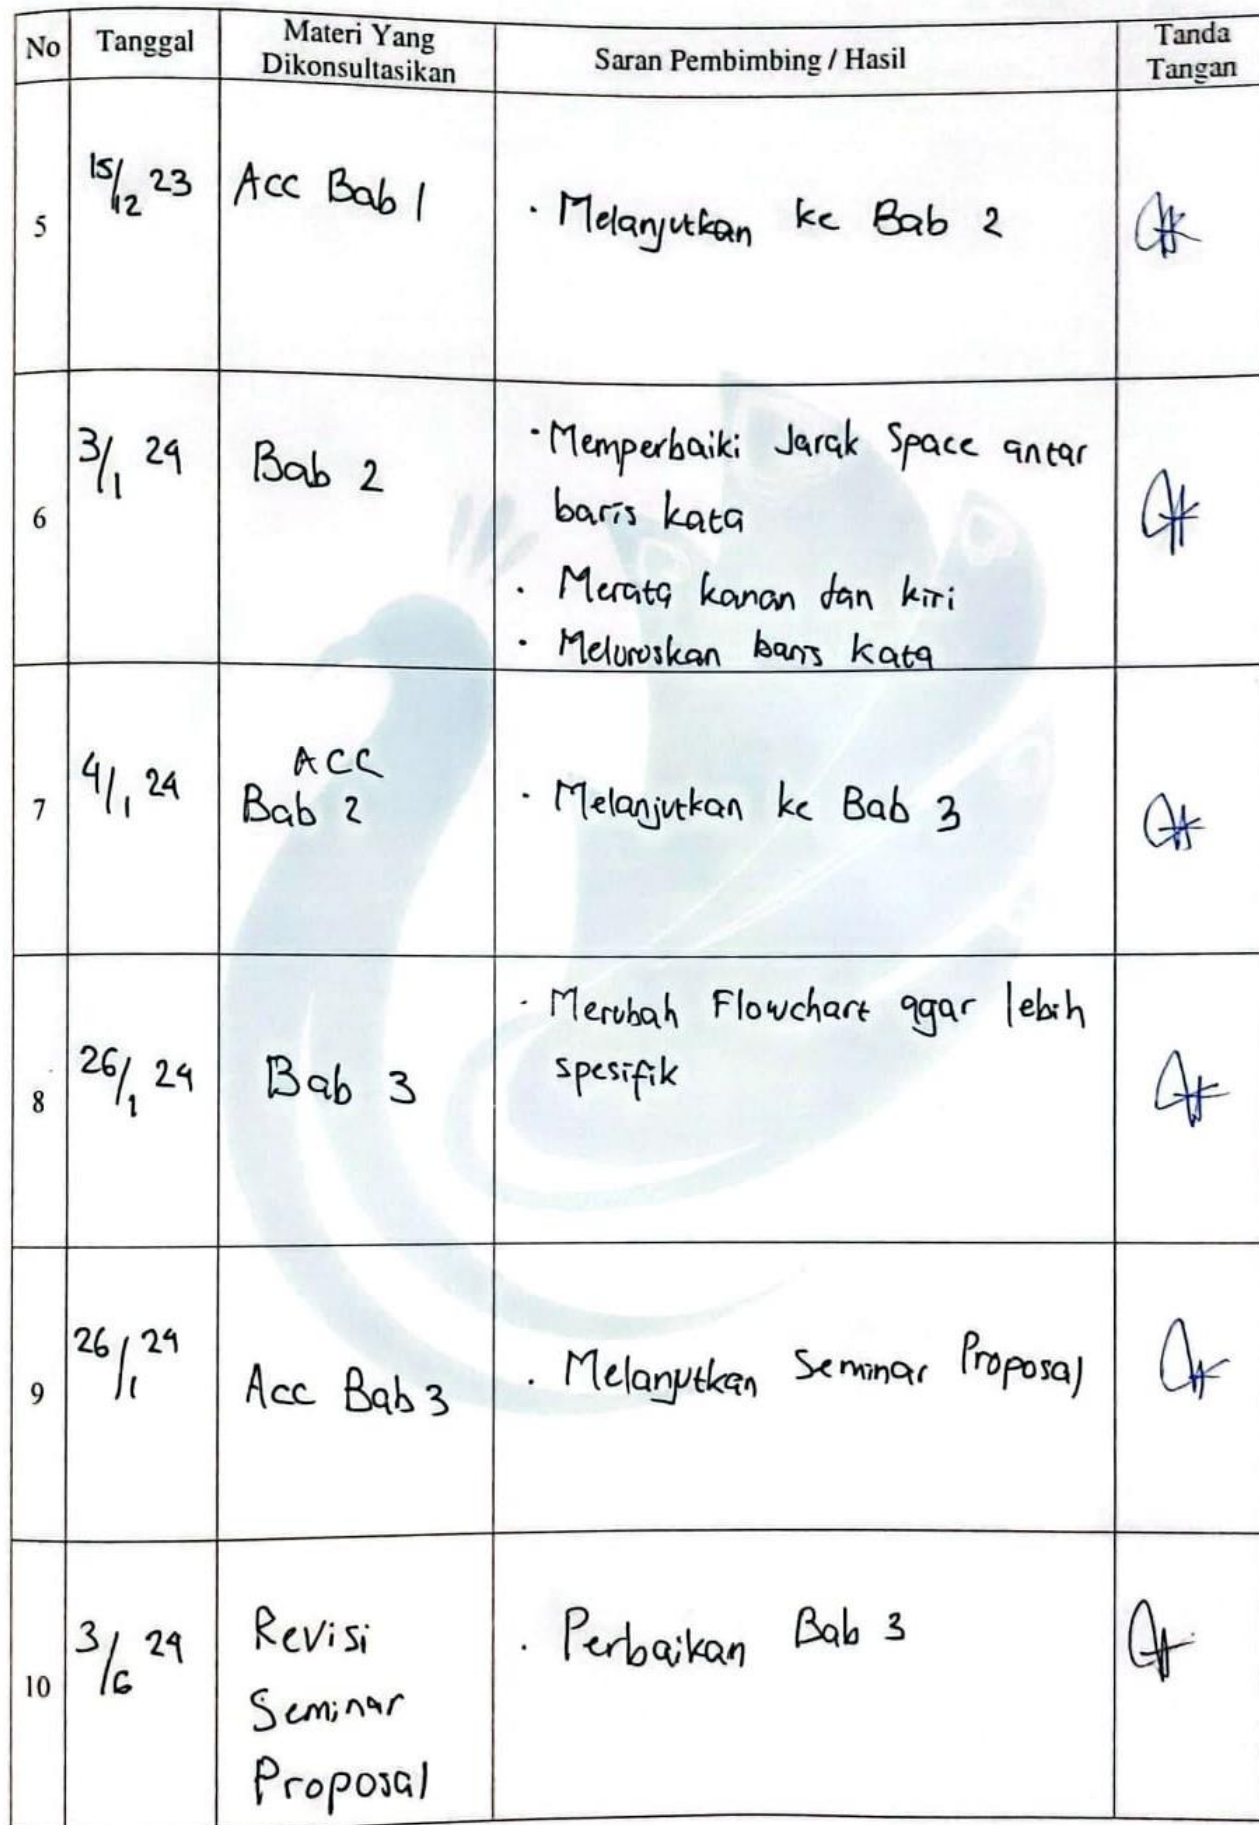 No Tanggal Materi Yang Dikonsultasikan Saran Pembimbing / Hasil Tanda Tangan
5 15/12 23 Acc Bab 1 · Melanjutkan ke Bab 2
6 3/1 24 Bab 2 · Memperbaiki Jarak Space antar
baris kata
· Merata kanan dan kiri
· Meluruskan baris kata
7 4/1 24 ACC
Bab 2 · Melanjutkan ke Bab 3
8 26/1 24 Bab 3 · Merubah Flowchart agar lebih
spesifik
9 26/1 24 Acc Bab 3 · Melanjutkan Seminar Proposal
10 3/6 24 Revisi
Seminar
Proposal · Perbaikan Bab 3